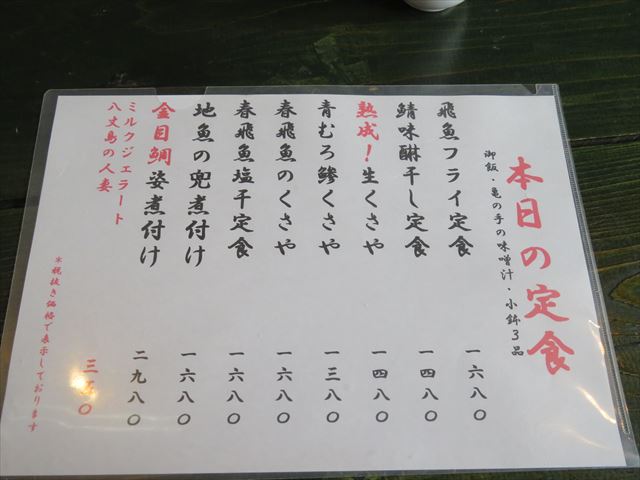 本日の定食
御飯・亀の手の味噌汁・小鉢3品
飛魚フライ定食 一六八〇
鯖味醂干し定食 一四八〇
熟成!生くさや 一四八〇
青むろ鯵くさや 一三八〇
春飛魚のくさや 一六八〇
春飛魚塩干定食 一六八〇
地魚の兜煮付け 一六八〇
金目鯛姿煮付け 二九八〇
ミルクジェラート
八丈島の人妻 三五〇
※税抜き価格で表示しております